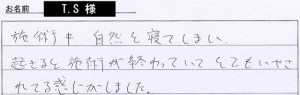 お名前 T.S 様
施術中 自然と寝てしまい、
起きると施術が終わっていてとてもいやさ
れてる感じがしました。